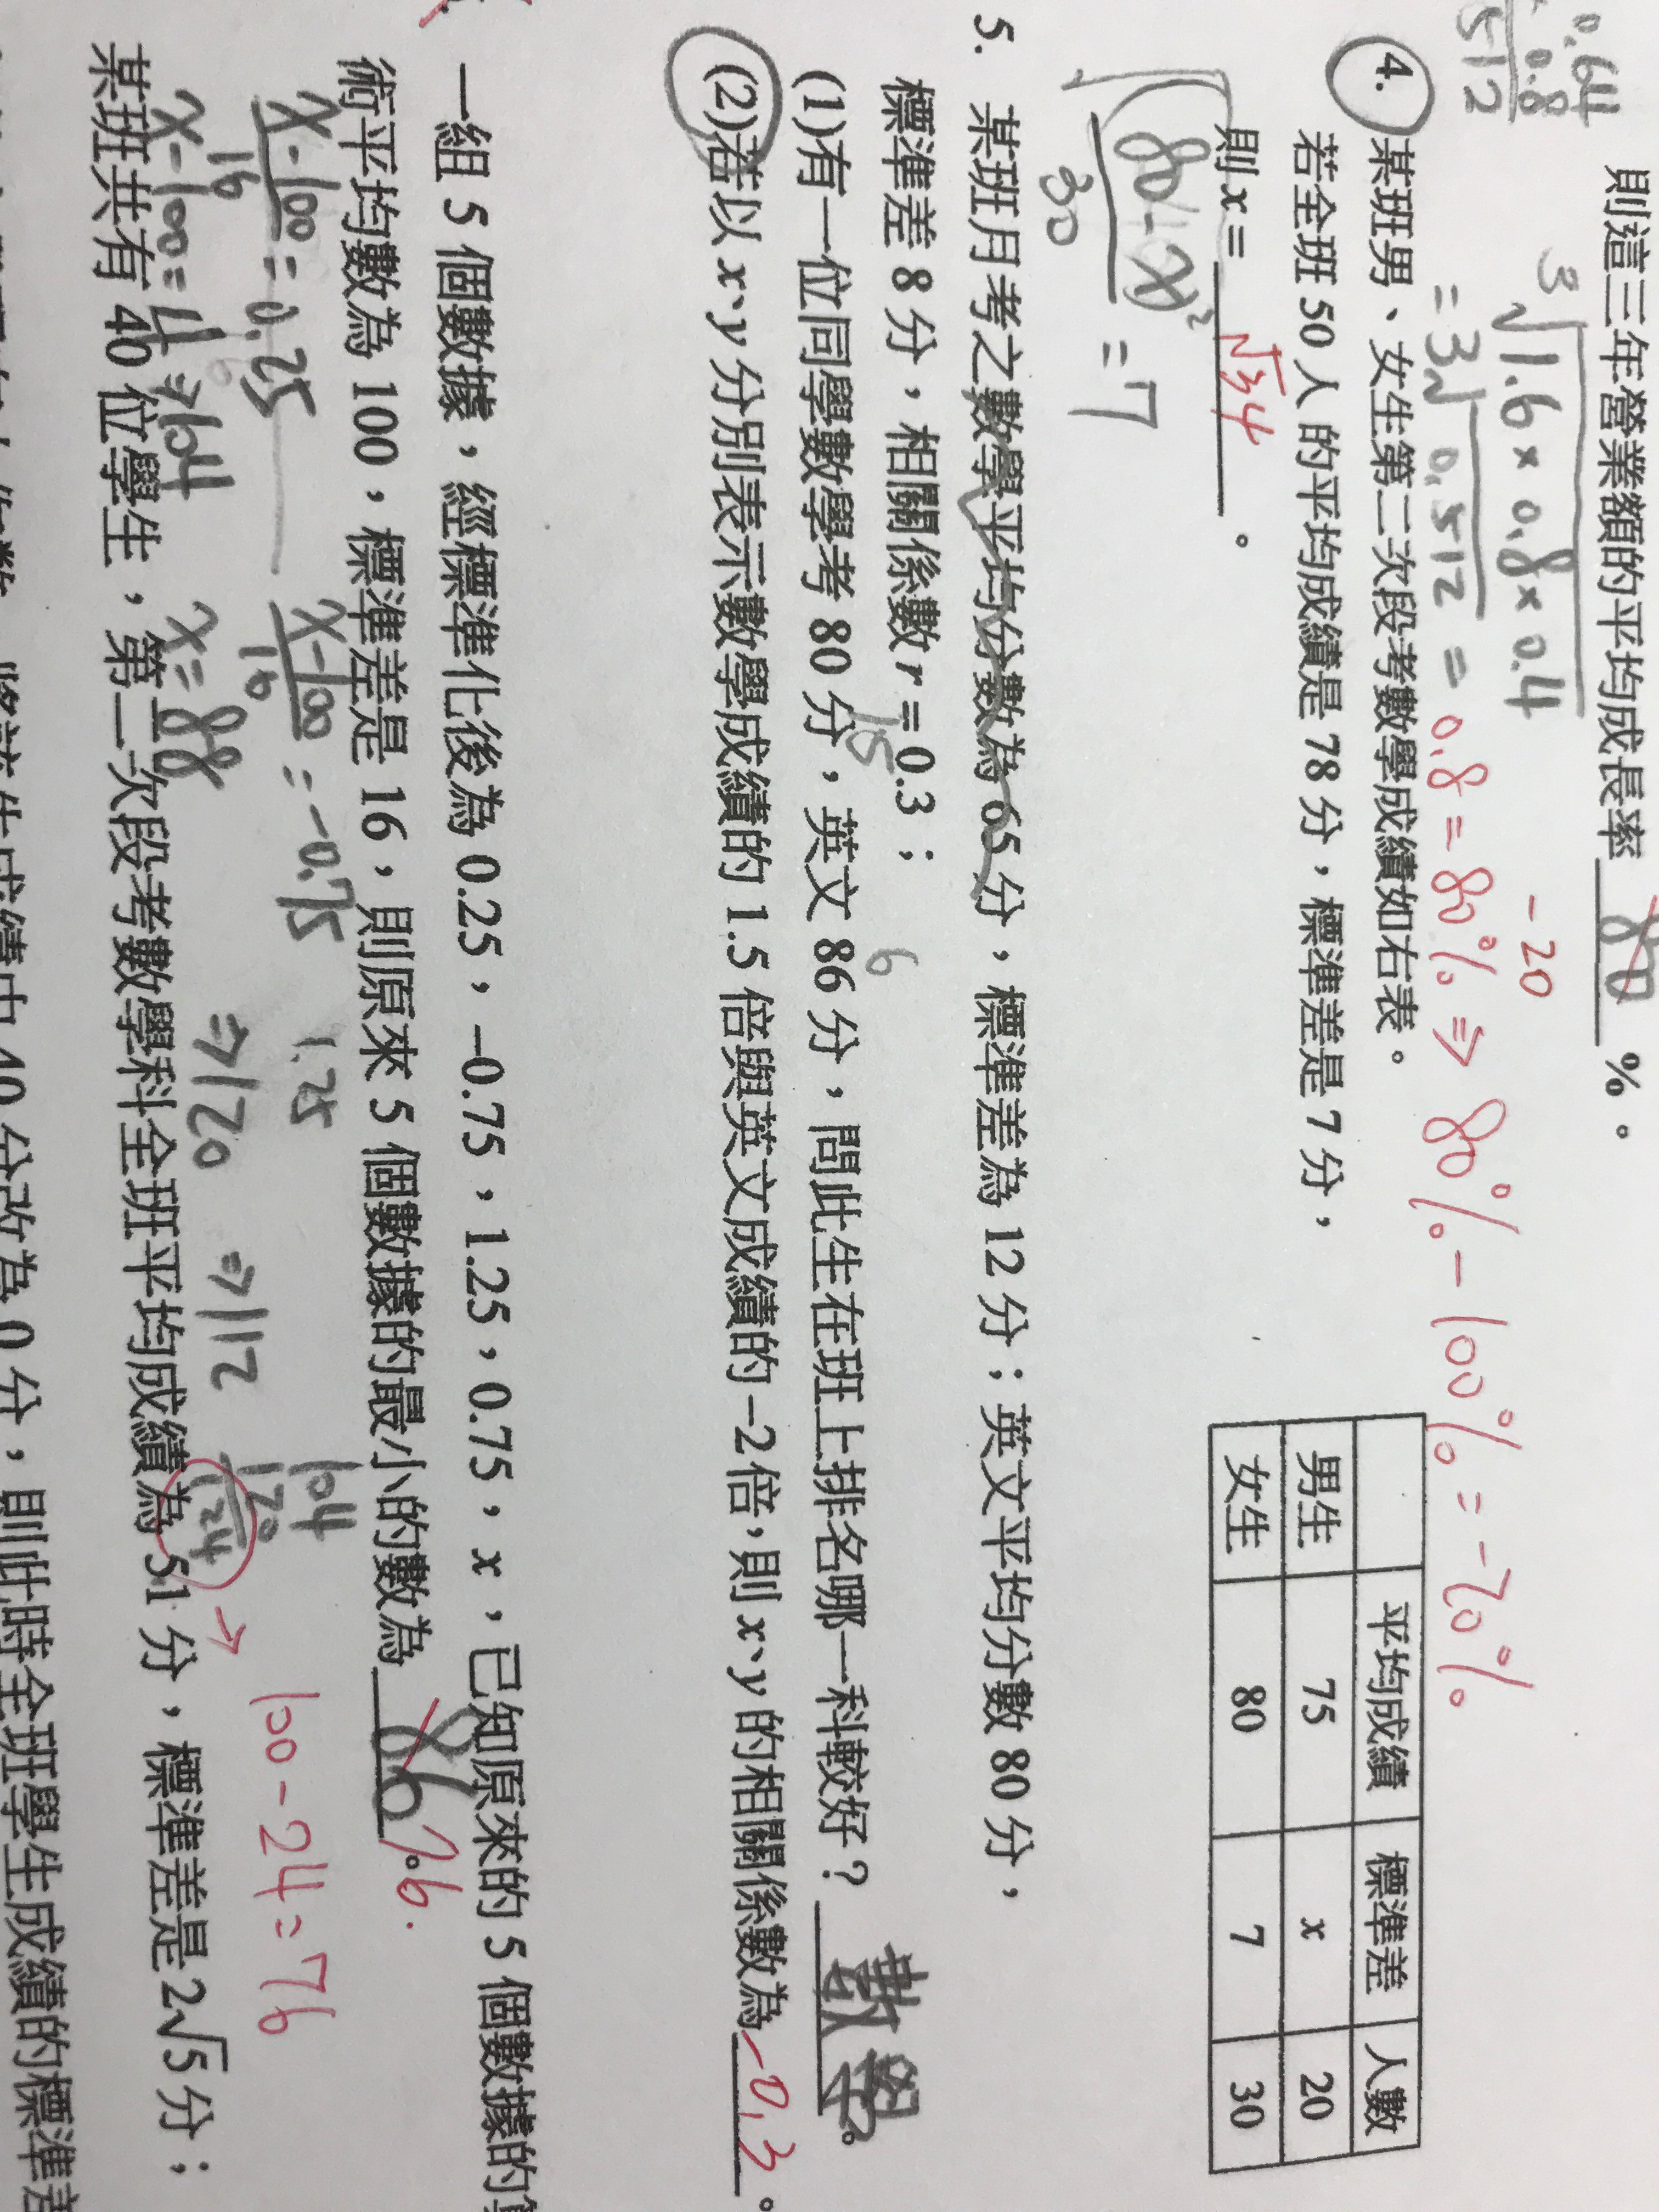 則這三年營業額的平均成長率 80 %。
-20
0.64
0.8
512
3√1.6×0.8×0.4
=3√0.512 = 0.8 = 80% ⇒ 80% - 100% = -20%
4. 某班男、女生第二次段考數學成績如右表。
若全班 50 人的平均成績是 78 分，標準差是 7 分，
則 x = √34 。
平均成績 標準差 人數
男生 75 x 20
女生 80 7 30
√(80-x)²
30
= 7
5. 某班月考之數學平均分數為 65 分，標準差為 12 分；英文平均分數 80 分，
標準差 8 分，相關係數 r = 0.3；
15 6
(1)有一位同學數學考 80 分，英文 86 分，問此生在班上排名哪一科較好？ 數學。
(2)若以 x、y 分別表示數學成績的 1.5 倍與英文成績的 -2 倍，則 x、y 的相關係數為 -0.3 。
一組 5 個數據，經標準化後為 0.25，-0.75，1.25，0.75，x，已知原來的 5 個數據的算
術平均數為 100，標準差是 16，則原來 5 個數據的最小的數為 86 76.
x-100
16
= 0.25
x-100
16
= -0.75
1.25
x-100=4 ⇒ 104
x=88
⇒120
⇒112
104
120
424
100-24=76
某班共有 40 位學生，第二次段考數學科全班平均成績為 51 分，標準差是 2√5 分；
將該生成績由 40 分改為 0 分，則此時全班學生成績的標準差